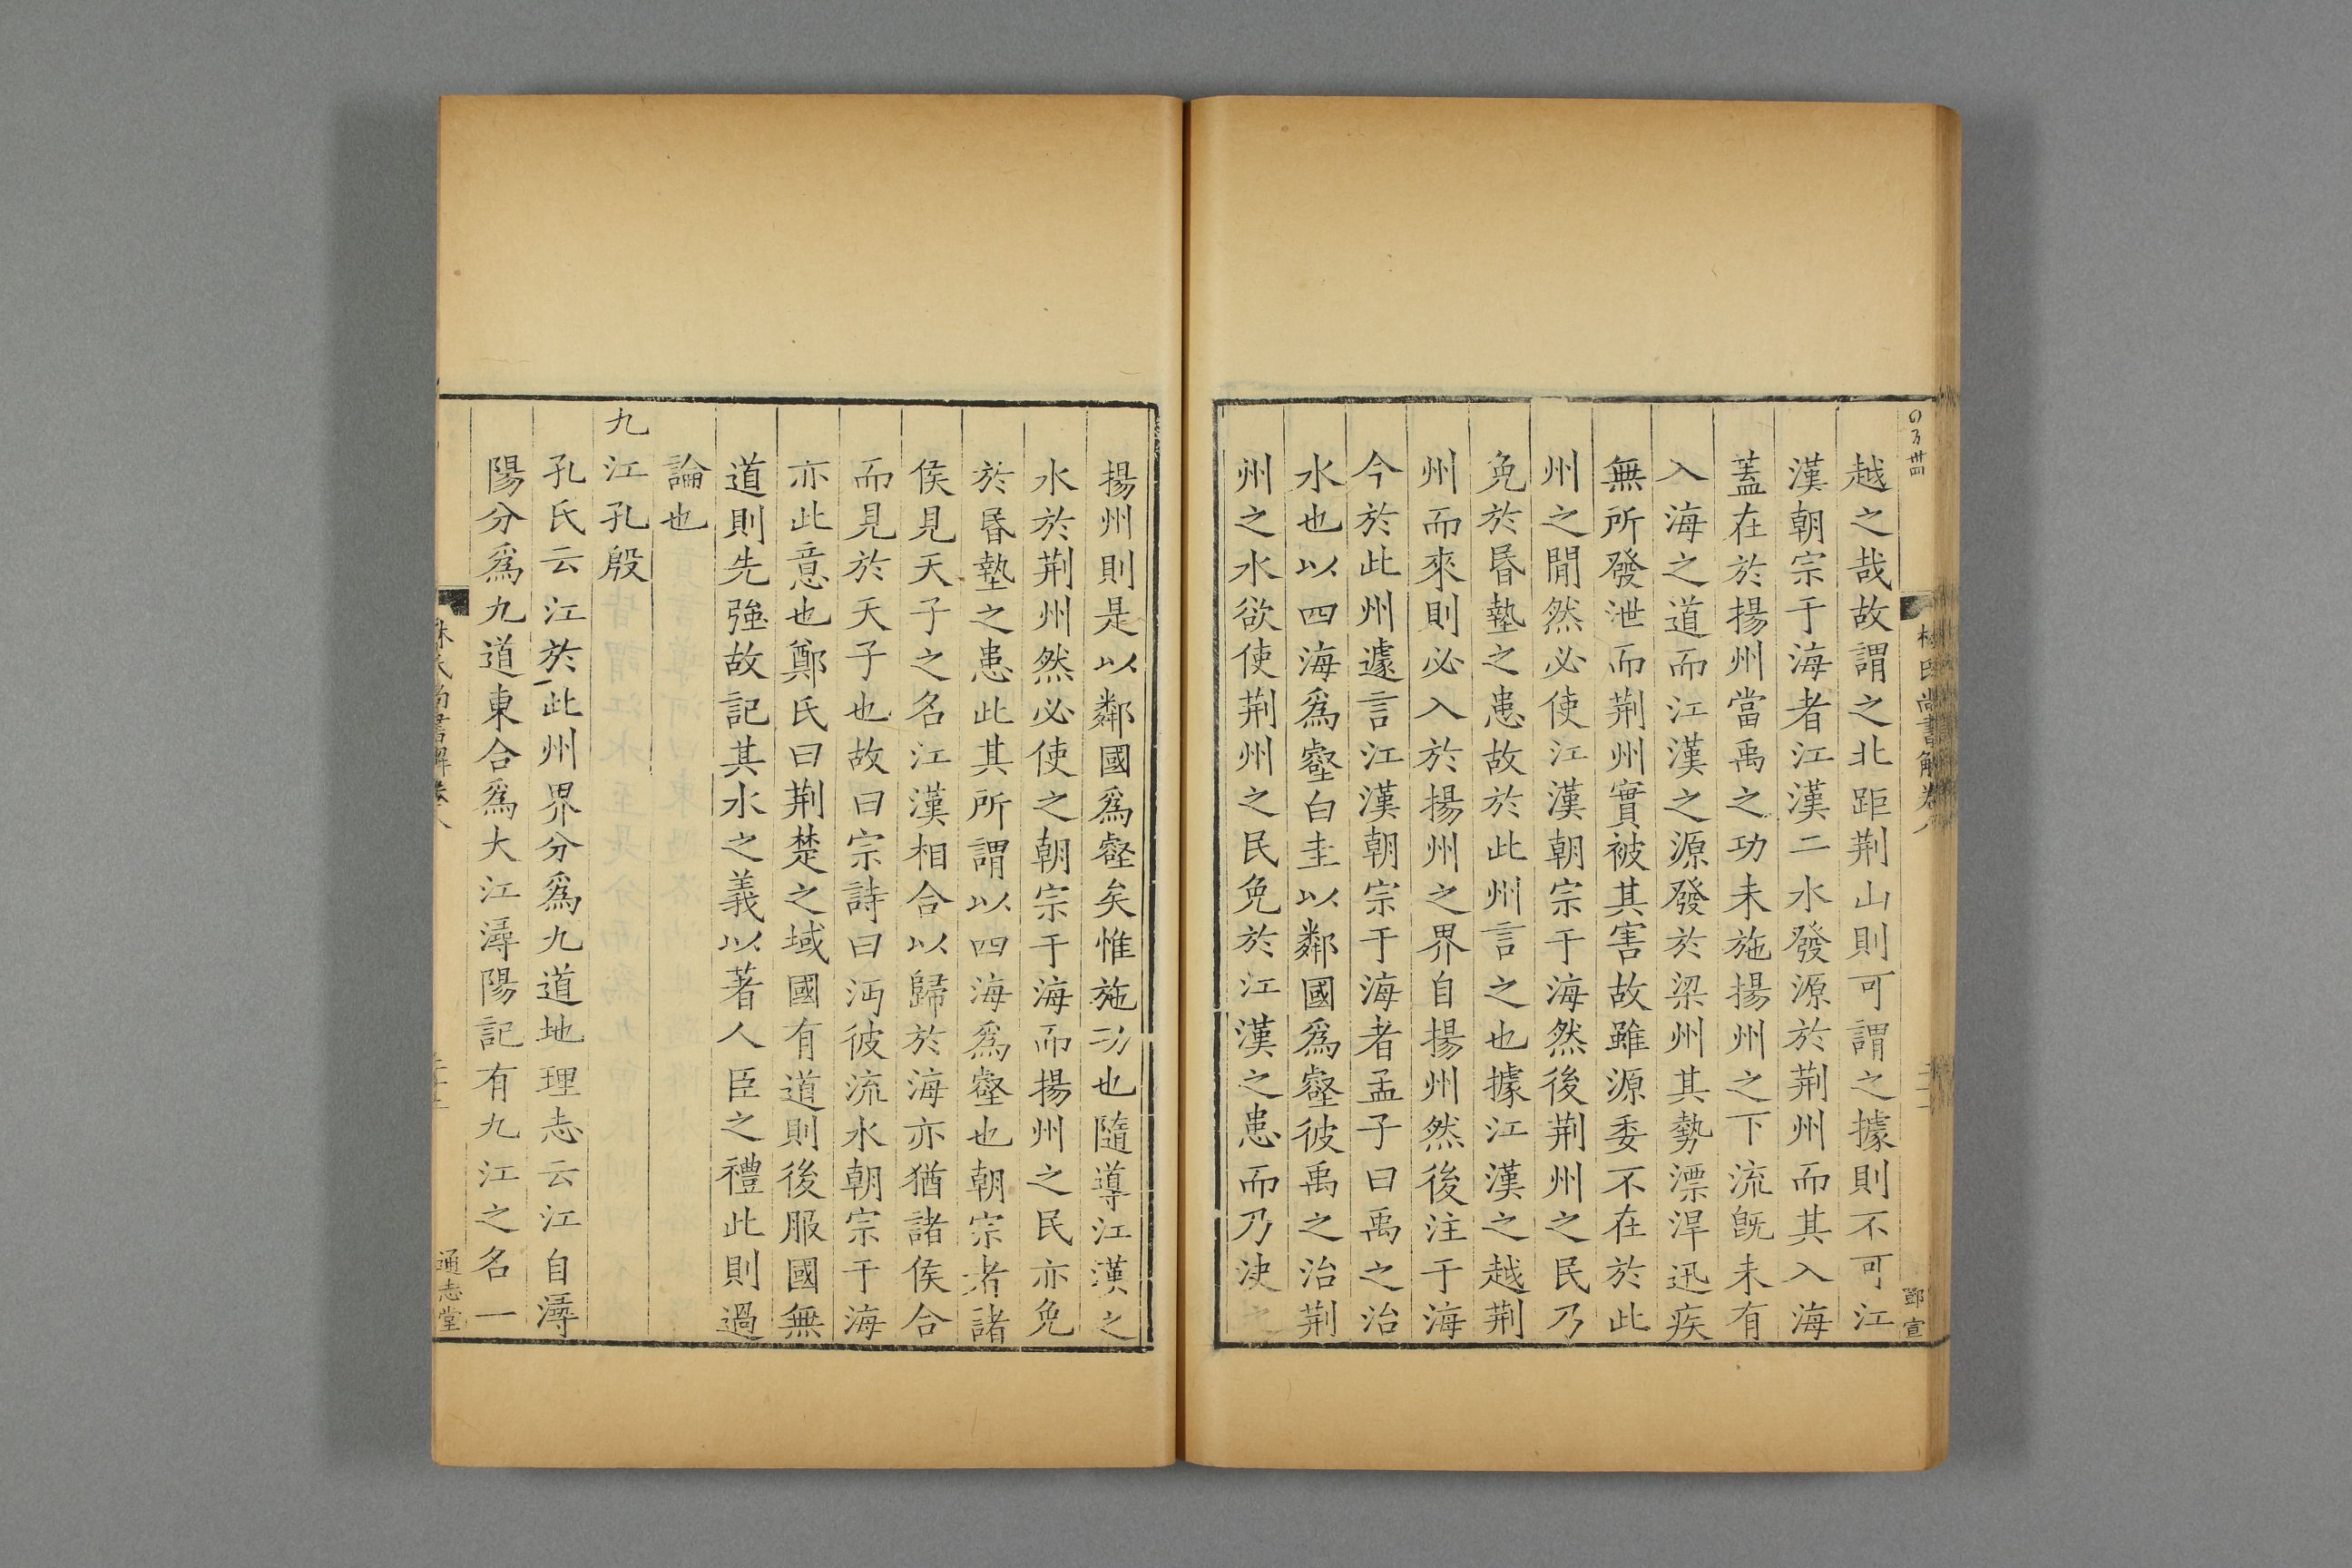 越之哉故謂之北距荆山則可謂之據則不可江
漢朝宗于海者江漢二水發源於荆州而其入海
蓋在於揚州當禹之功未施揚州之下流旣未有
入海之道而江漢之源發於梁州其勢漂渾迅疾
無所發泄而荆州實被其害故雖源委不在於此
州之閒然必使江漢朝宗于海然後荆州之民乃
免於昬墊之患故於此州言之也據江漢之越荆
州而來則必入於揚州之界自揚州然後注于海
今於此州遽言江漢朝宗于海者孟子曰禹之治
水也以四海爲壑白圭以鄰國爲壑彼禹之治荆
州之水欲使荆州之民免於江漢之患而乃決之
揚州則是以鄰國爲壑矣惟施功也隨導江漢之
水於荆州然必使之朝宗于海而揚州之民亦免
於昬墊之患此其所謂以四海爲壑也朝宗者諸
侯見天子之名江漢相合以歸於海亦猶諸侯合
而見於天子也故曰宗詩曰沔彼流水朝宗于海
亦此意也鄭氏曰荆楚之域國有道則後服國無
道則先強故記其水之義以著人臣之禮此則過
論也
九江孔殷
孔氏云江於此州界分爲九道地理志云江自潯
陽分爲九道東合爲大江潯陽記有九江之名一
林氏尚書解卷八
通志堂
林氏尚書解卷八
鄧宣